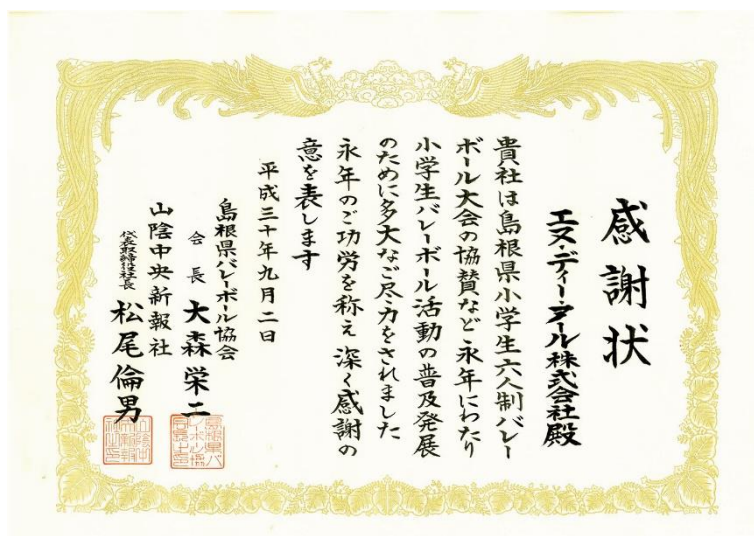 感謝状
エヌ・ディー・アール株式会社殿
貴社は島根県小学生六人制バレー
ボール大会の協賛など永年にわたり
小学生バレーボール活動の普及発展
のために多大なご尽力をされました
永年のご功労を称え深く感謝の
意を表します
平成三十年九月二日
島根県バレーボール協会
会長 大森栄二
山陰中央新報社
代表取締役社長 松尾倫男